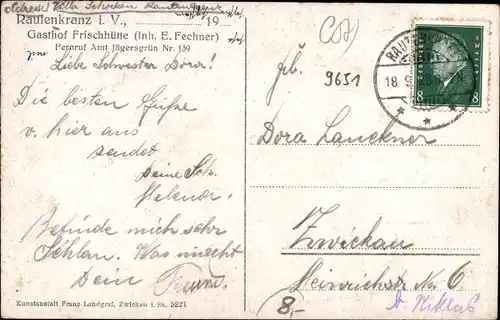 Adresse Villa
Rautenkranz i. V., 19
Gasthof Frischhütte (Inh. E. Fechner)
Fernruf Amt Jägersgrün Nr. 139
Liebe Schwester Dora!
Die besten Grüße
v. hier aus
sendet
Deine Sch.
Helene.
Befinde mich sehr
Schlau. Was macht
Dein Freund.
Kunstanstalt Franz Landgraf, Zwickau i. Sa. 5221
9651
RAUTENKRANZ
18.9
8 8
Dora Lanckner
Zwickau
Heinrichstr. No. 6
b. Niklas
8,-